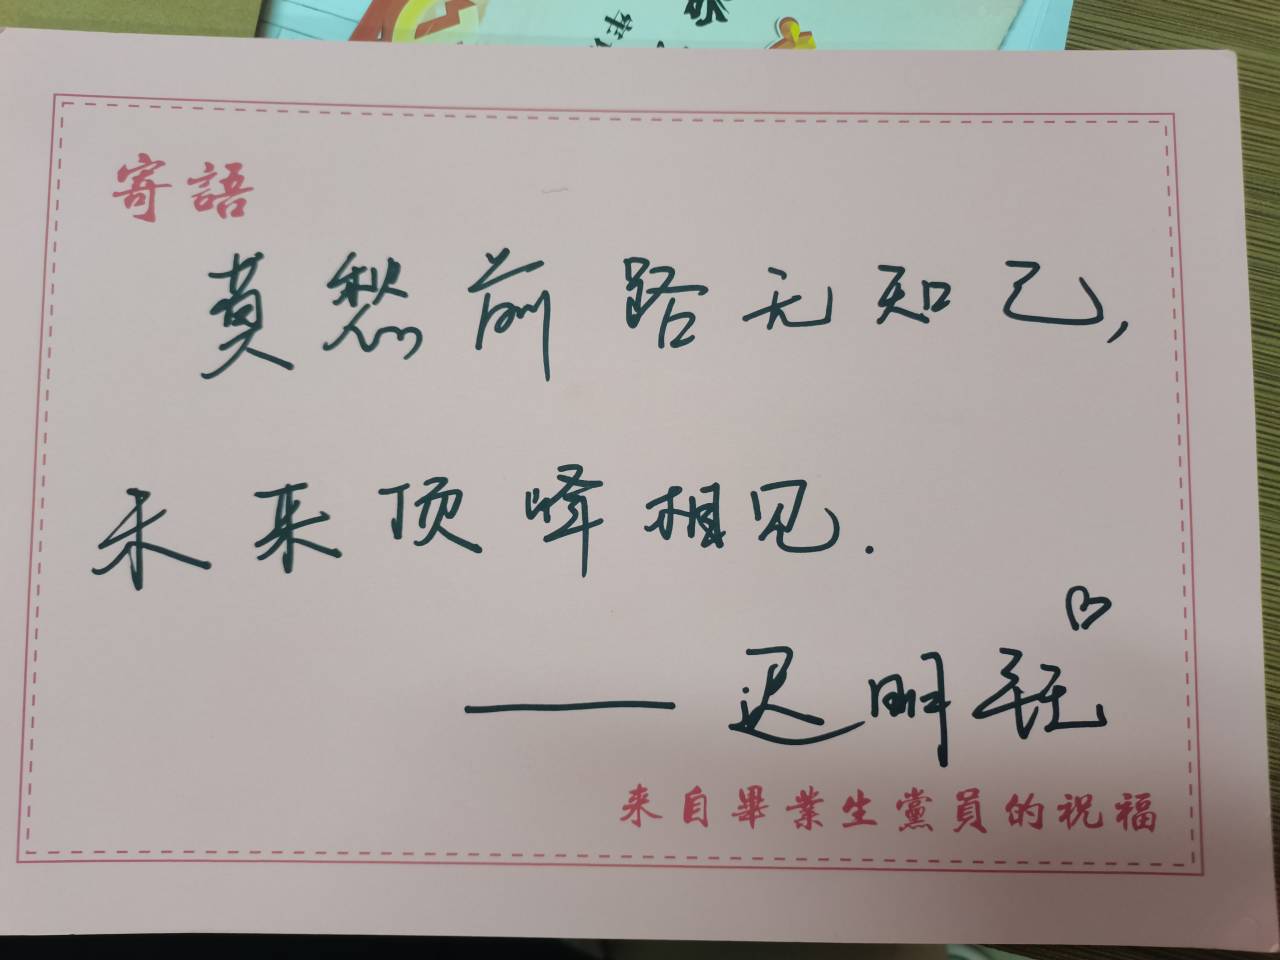 寄語
莫愁前路无知己,
未来顶峰相见.
——迟明
来自畢業生黨員的祝福